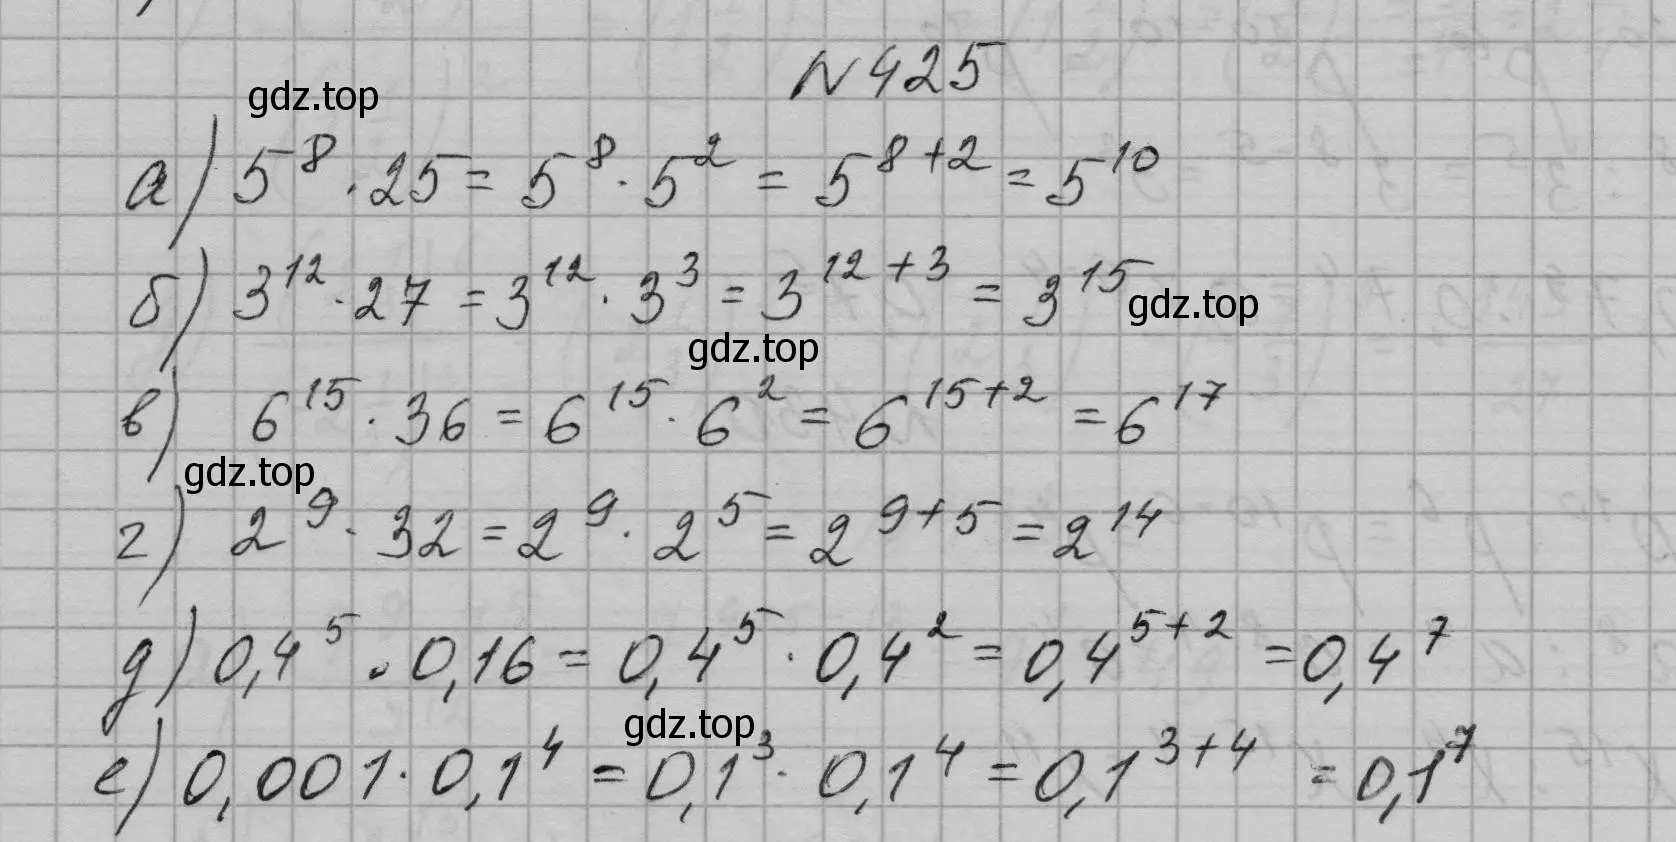 N 425
gdz.top
а) 5⁸ · 25 = 5⁸ · 5² = 5⁸⁺² = 5¹⁰
б) 3¹² · 27 = 3¹² · 3³ = 3¹²⁺³ = 3¹⁵
gdz.top
gdz.top
в) 6¹⁵ · 36 = 6¹⁵ · 6² = 6¹⁵⁺² = 6¹⁷
gdz.top
г) 2⁹ · 32 = 2⁹ · 2⁵ = 2⁹⁺⁵ = 2¹⁴
д) 0,4⁵ · 0,16 = 0,4⁵ · 0,4² = 0,4⁵⁺² = 0,4⁷
gdz.top
е) 0,001 · 0,1⁴ = 0,1³ · 0,1⁴ = 0,1³⁺⁴ = 0,1⁷